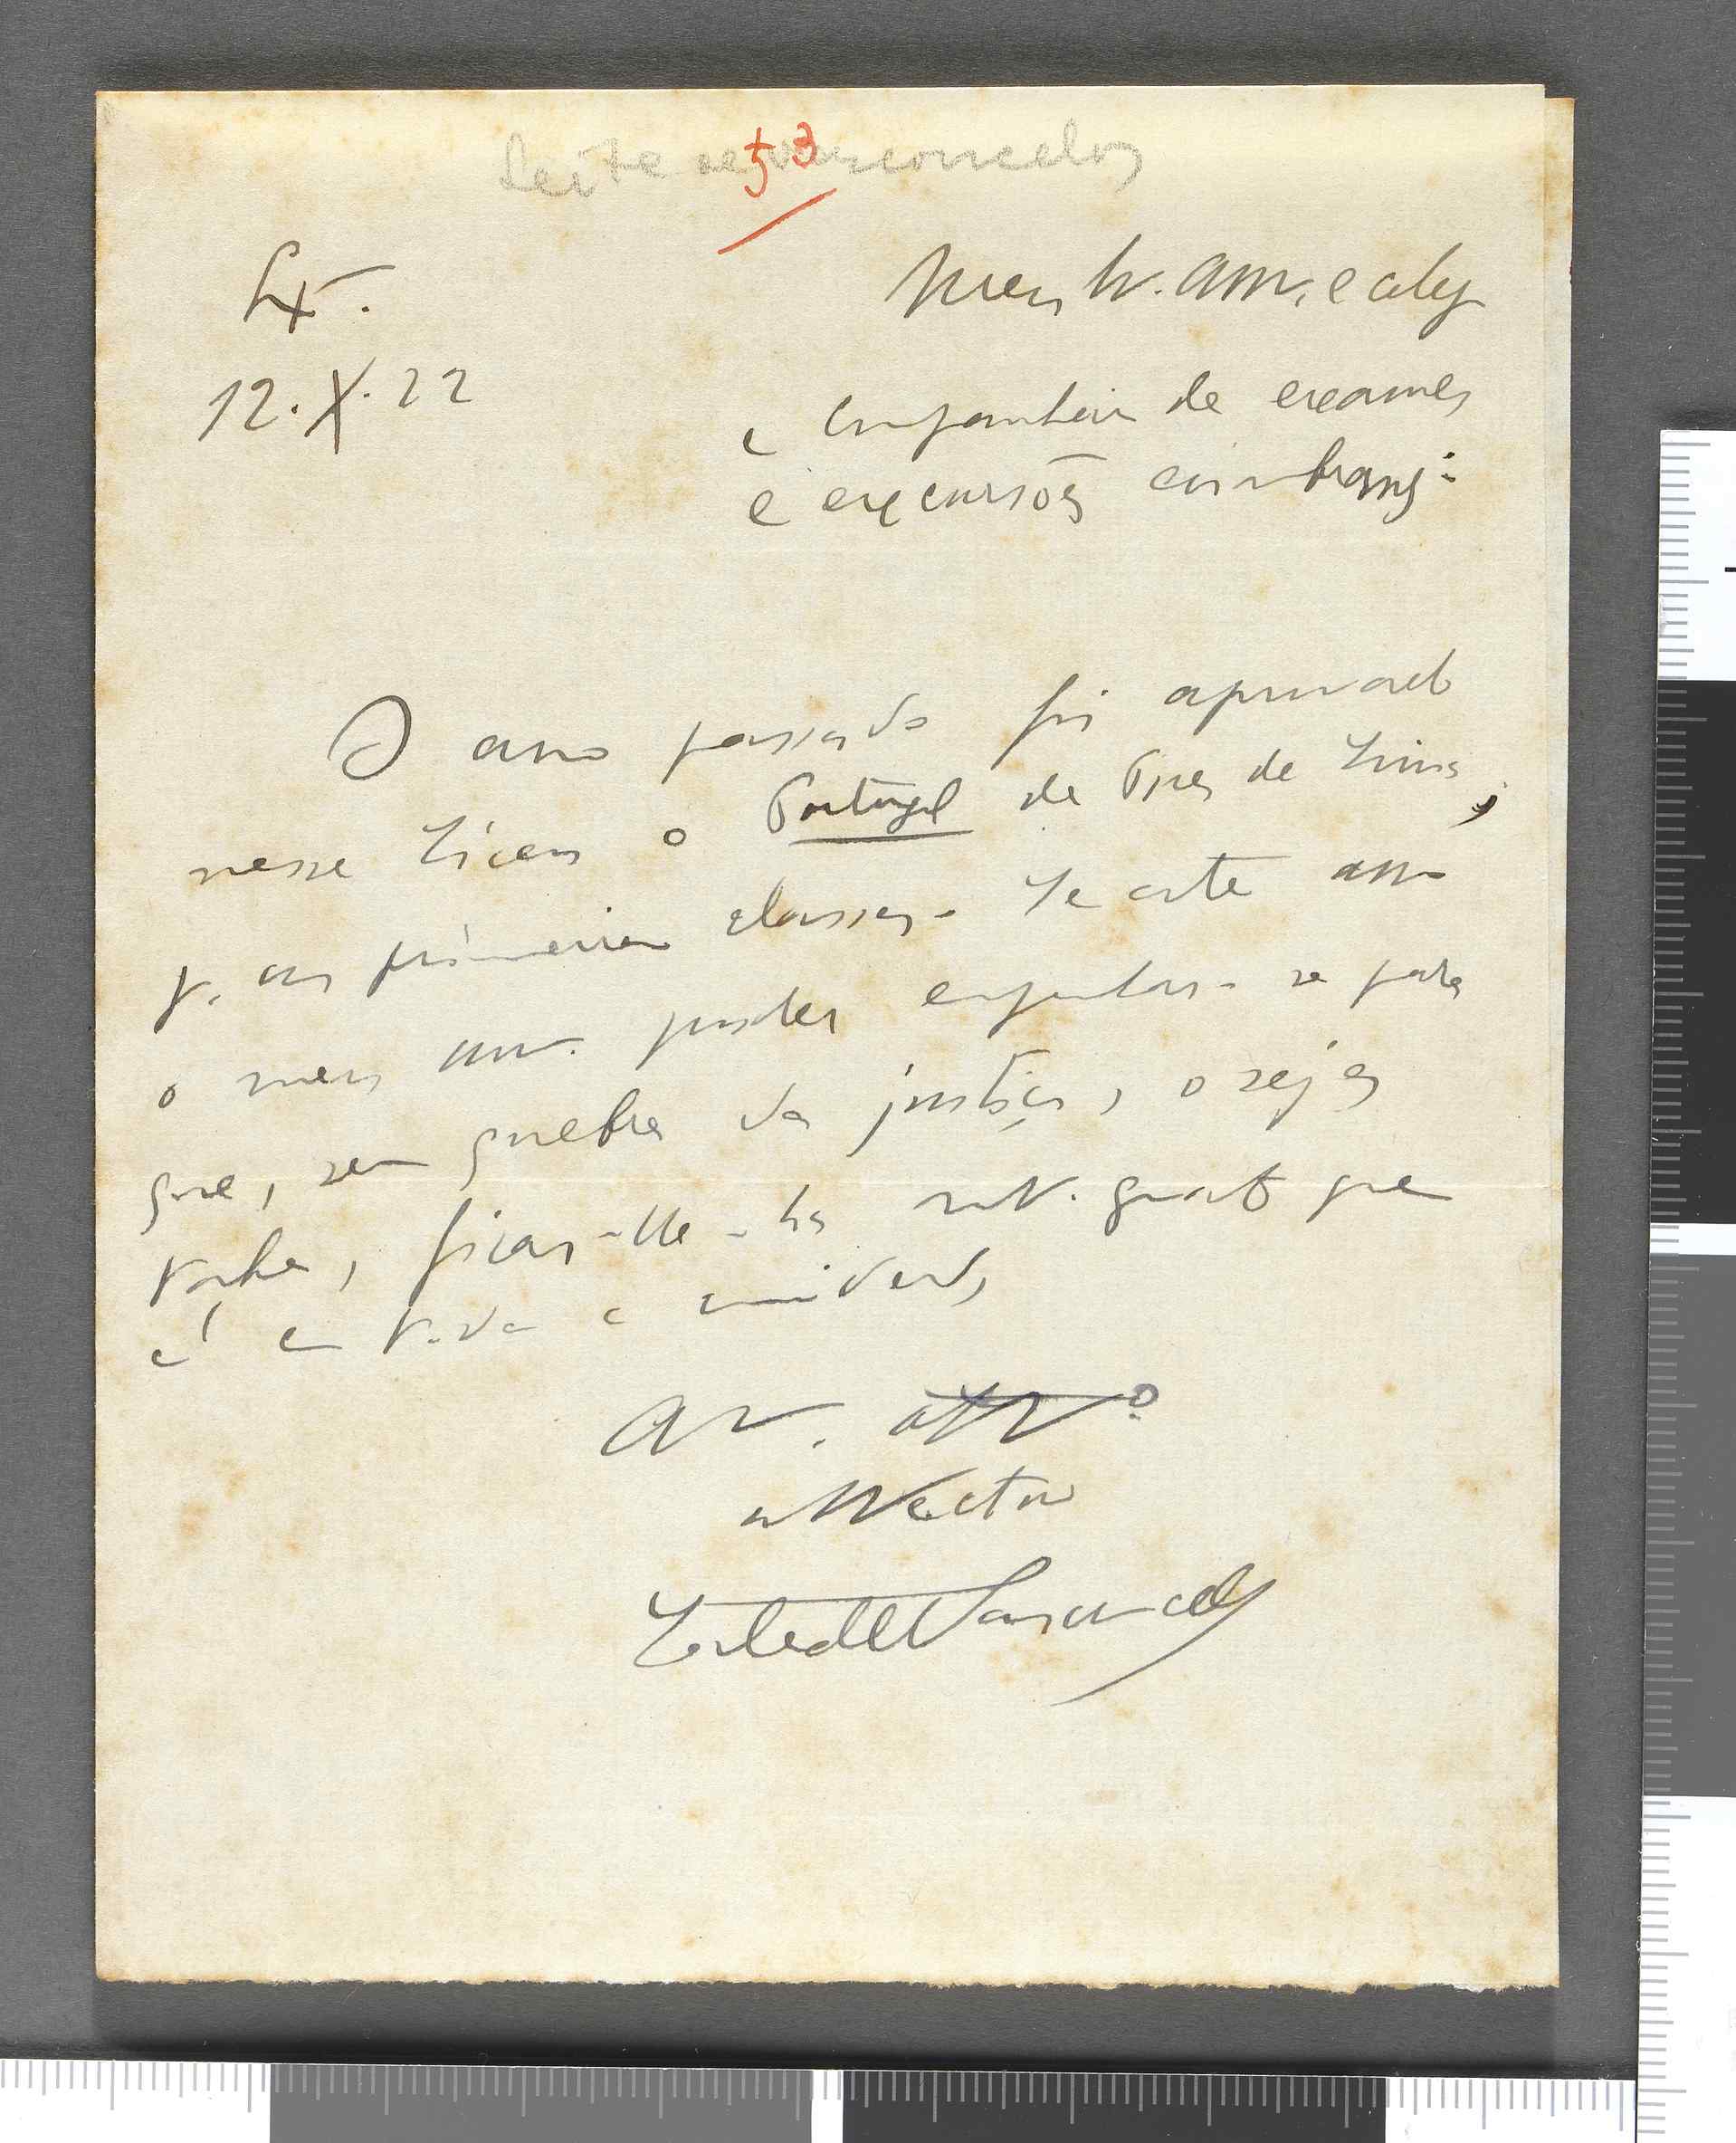 Leite de Vasconcelos
53
Lx.
12.X.22
Meu b. am. e coleg
e companheiro de exames
e excursões coimbrãs:
O ano passado foi aprovado
nesse Liceu o Portugal de Pires de Lima,
p. as primeiras classes. Se este ano
o meu am. puder empenhar-se para
que, sem quebra da justiça, o seja
, ficar-lhe-há mt. grato quem
é em tudo e
Am. att.º
affectuo
Leite de Vasconcelos